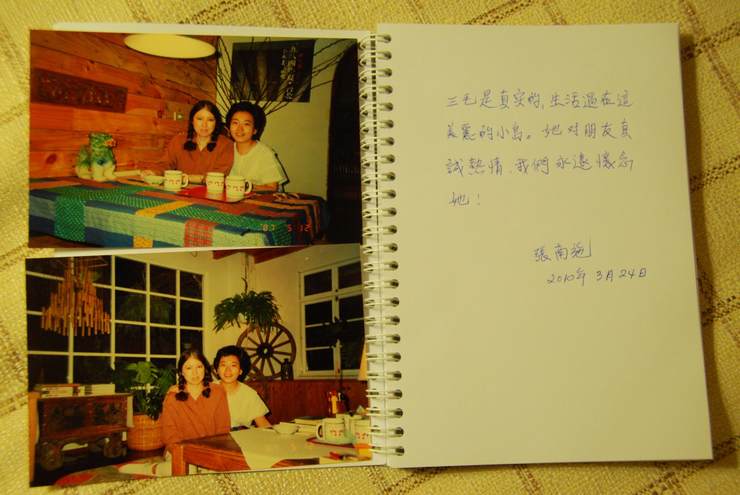 三毛是真实的,生活過在這
美麗的小島。她對朋友真
誠熱情,我們永遠懷念
她!
張南施
2010年 3月24日
87 5 12